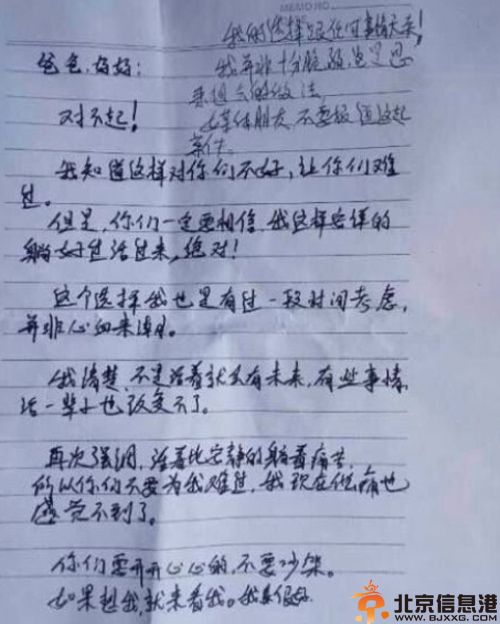 MEMO NO.
我的选择跟任何事情无关!
爸爸,妈妈:
我并非十分脆弱,也是思
来想去的做法,
对不起!
媒体朋友,不要报道这起
案件
我知道这样对你们不好,让你们难
过。
但是,你们一定要相信,我这样安详的
躺好过活过来,绝对!
这个选择我也是有过一段时间考虑,
并非心血来潮。
我清楚,不是活着就会有未来,有些事情,
活一辈子也改变不了。
再次强调,活着比安静的躺着痛苦,
所以你们不要为我难过,我现在低痛也
感觉不到了。
你们要开开心心的,不要吵架。
如果想我,就来看我。我其很好
北京信息港
WWW.BJXXG.COM